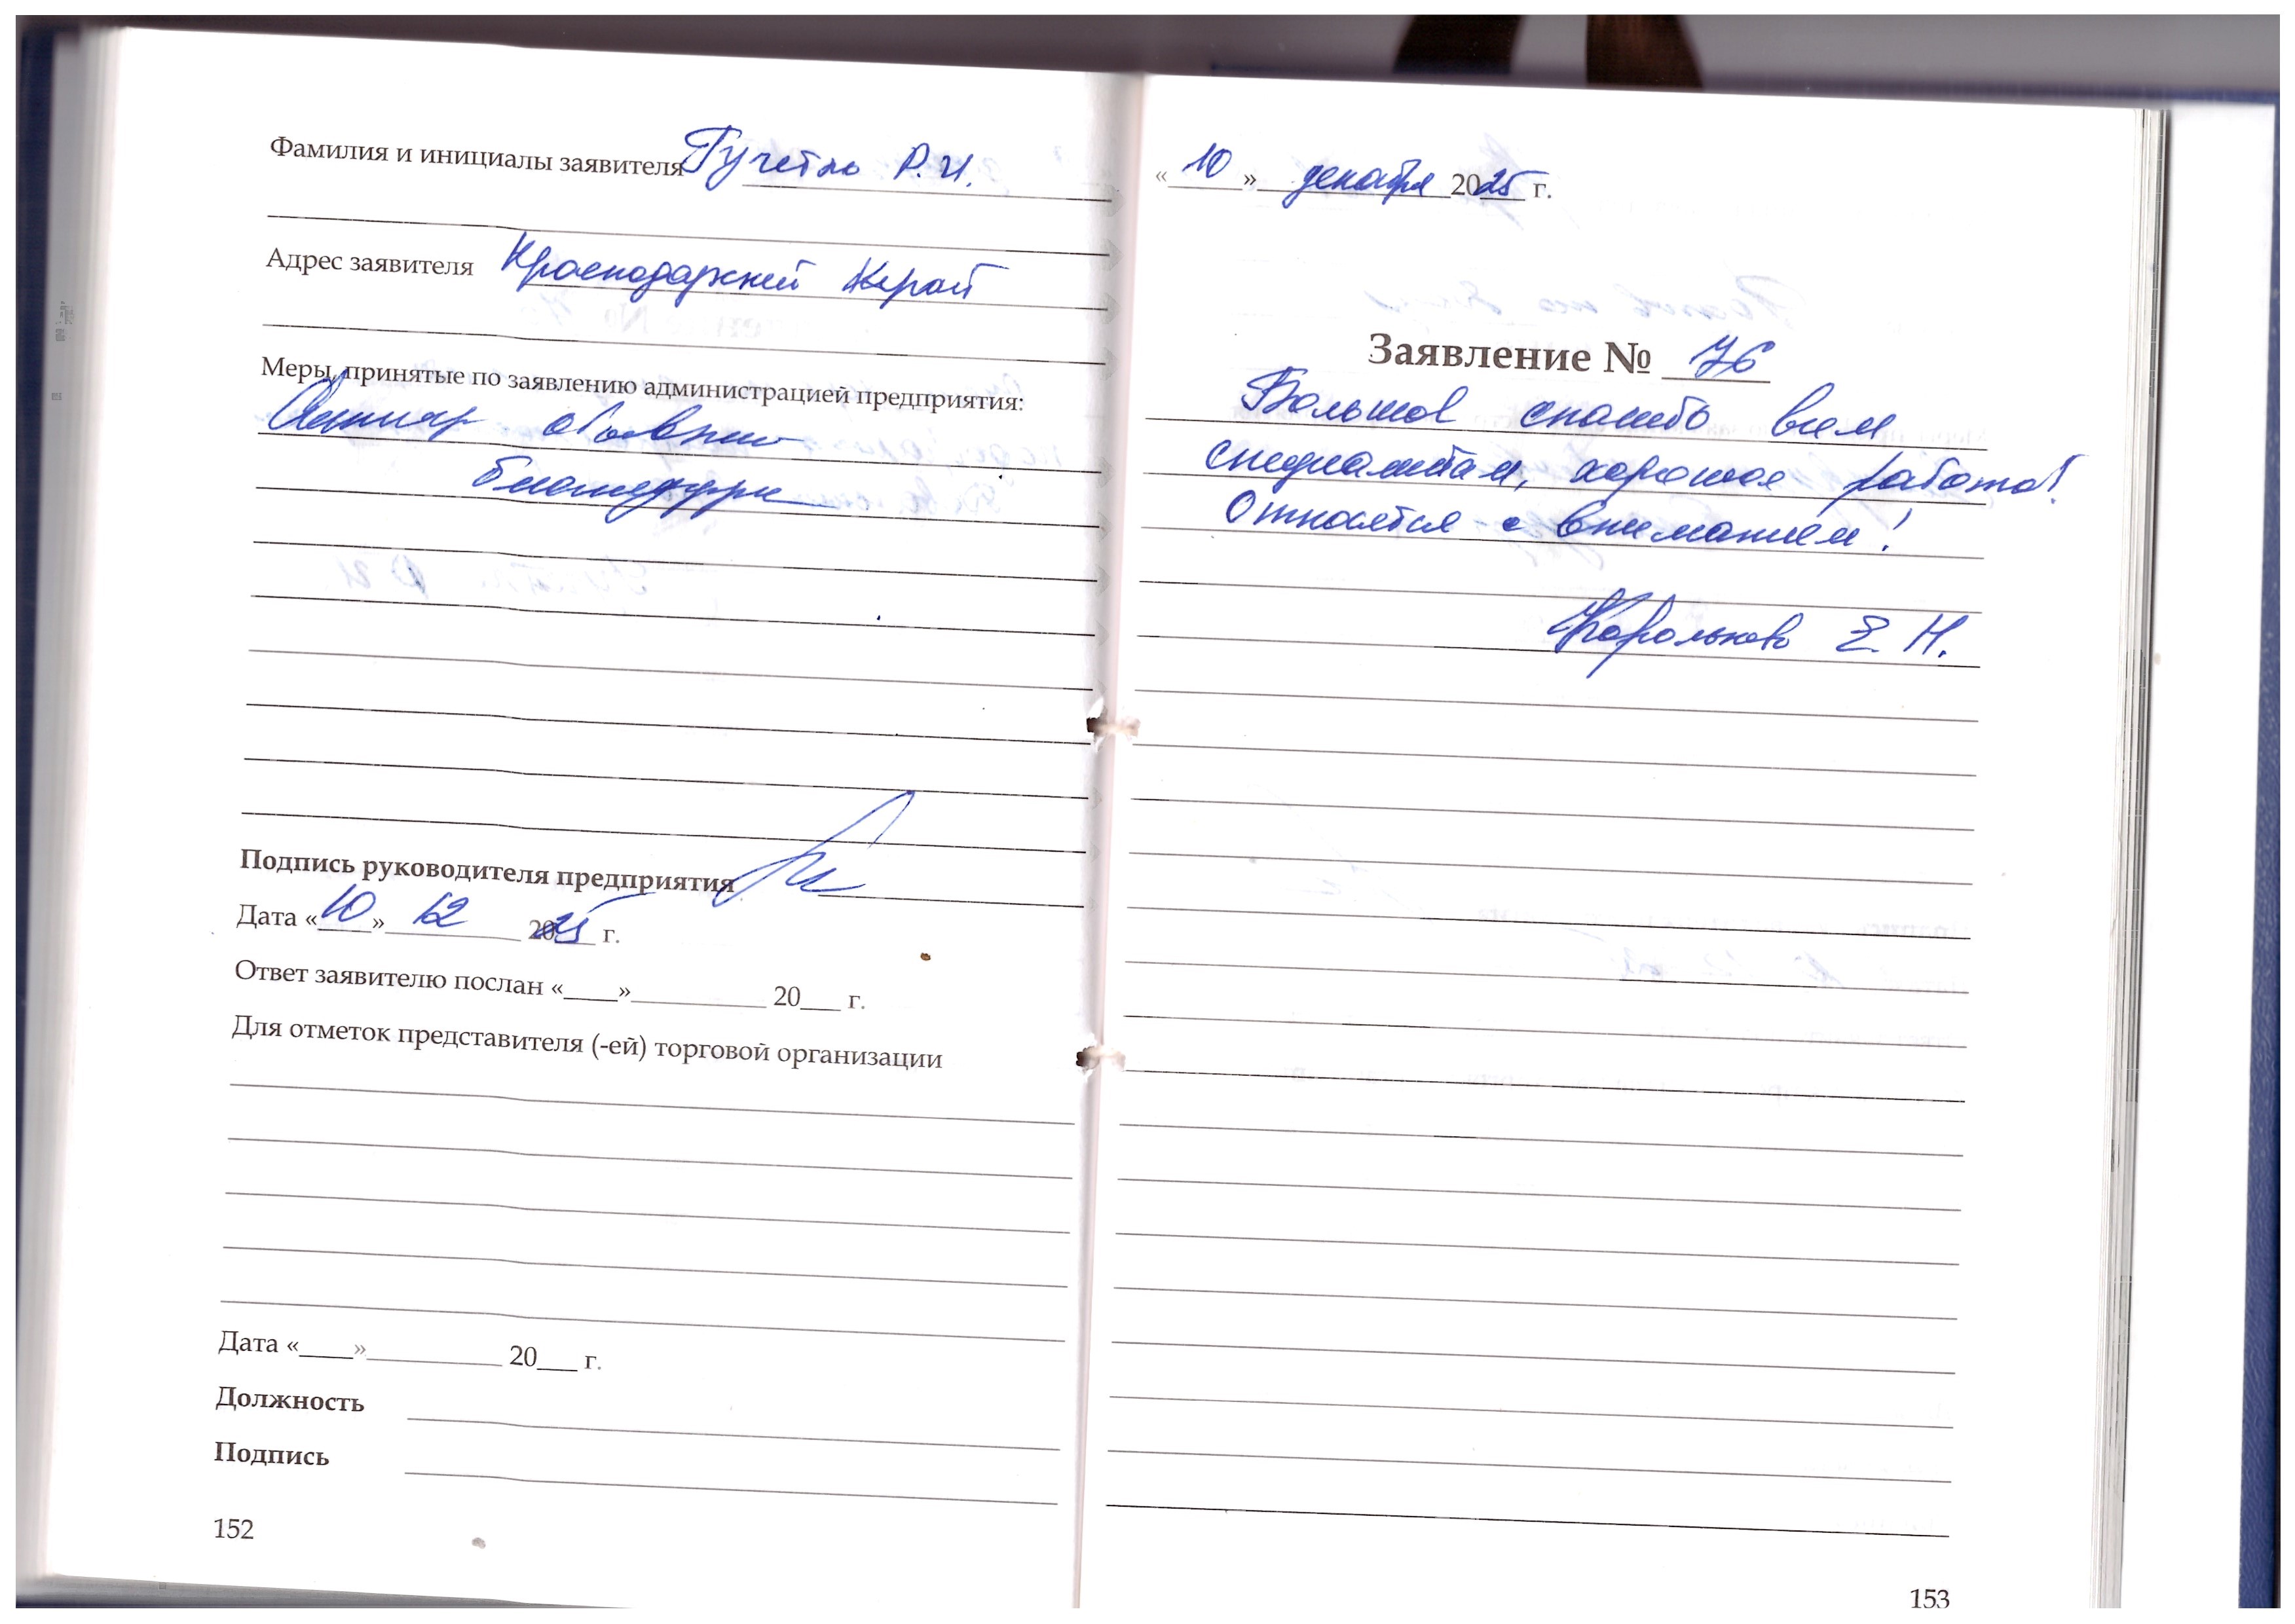 Фамилия и инициалы заявителя Гучетль Р.И.
Адрес заявителя Краснодарский Край
Меры, принятые по заявлению администрацией предприятия:
объявить
Подпись руководителя предприятия
Дата «10» 12 2025 г.
Ответ заявителю послан «____»__________ 20___ г.
Для отметок представителя (-ей) торговой организации
Дата «____»__________ 20___ г.
Должность
Подпись
152
«10» декабря 2025 г.
Заявление № 76
Большое спасибо всем
специалистам, хорошая работа!
Относятся с вниманием!
Королькова Е.Н.
153